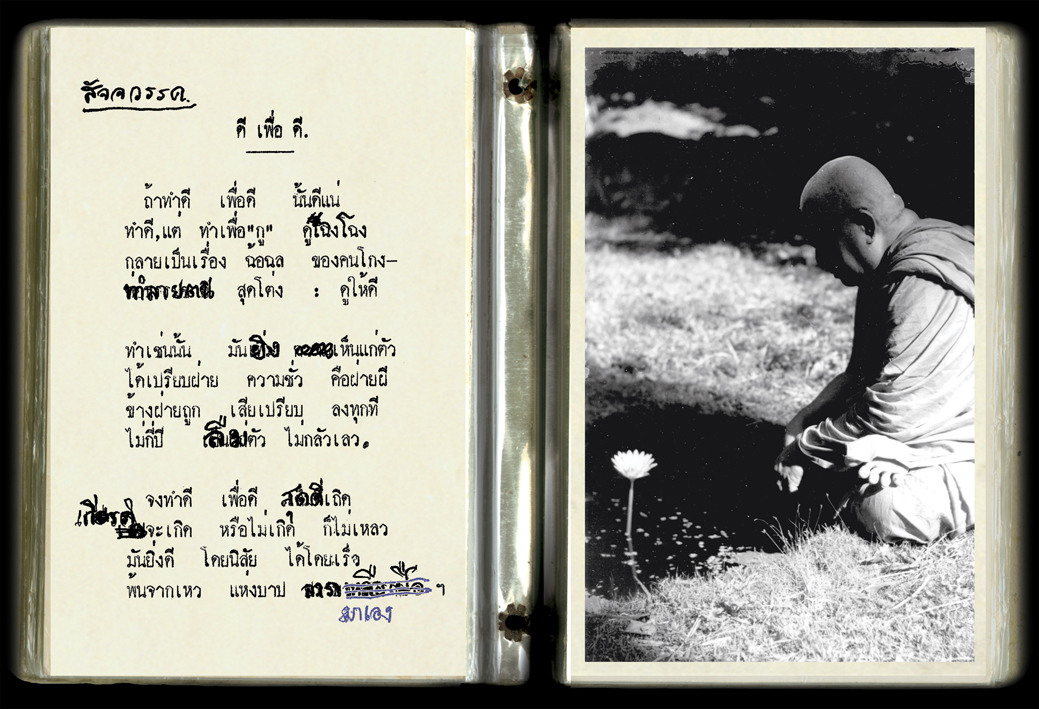 สัจจวรรค.
ดี เพื่อ ดี.
ถ้าทำดี เพื่อดี นั้นดีแน่
ทำดี,แต่ ทำเพื่อ"กู" ดูโฉงโฉง
กลายเป็นเรื่อง ฉ้อฉล ของคนโกง–
สุดโต่ง : ดูให้ดี
ทำเช่นนั้น มันยิ่ง เห็นแก่ตัว
ได้เปรียบฝ่าย ความชั่ว คือฝ่ายผี
ข้างฝ่ายถูก เสียเปรียบ ลงทุกที
ไม่กี่ปี ลืมตัว ไม่กลัวเลว.
จงทำดี เพื่อดี สุดดีเถิด
เกียรติจะเกิด หรือไม่เกิด ก็ไม่เหลว
มันยิ่งดี โดยนิสัย ได้โดยเร็ว
พ้นจากเหว แห่งบาป ฯ
มาเอง